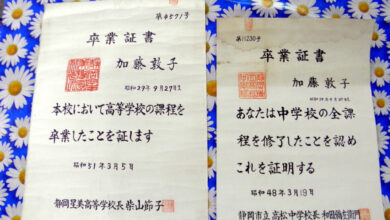 第4571号
卒業証書
加藤敦子
昭和29年9月27日生
本校において高等学校の課程を
卒業したことを証します
昭和51年3月5日
静岡星美高等学校長 柴山節子
卒業証書
加藤敦子
あなたは中学校の全課
程を修了したことを認め
これを証明する
昭和48年3月19日
静岡市立高松中学校長